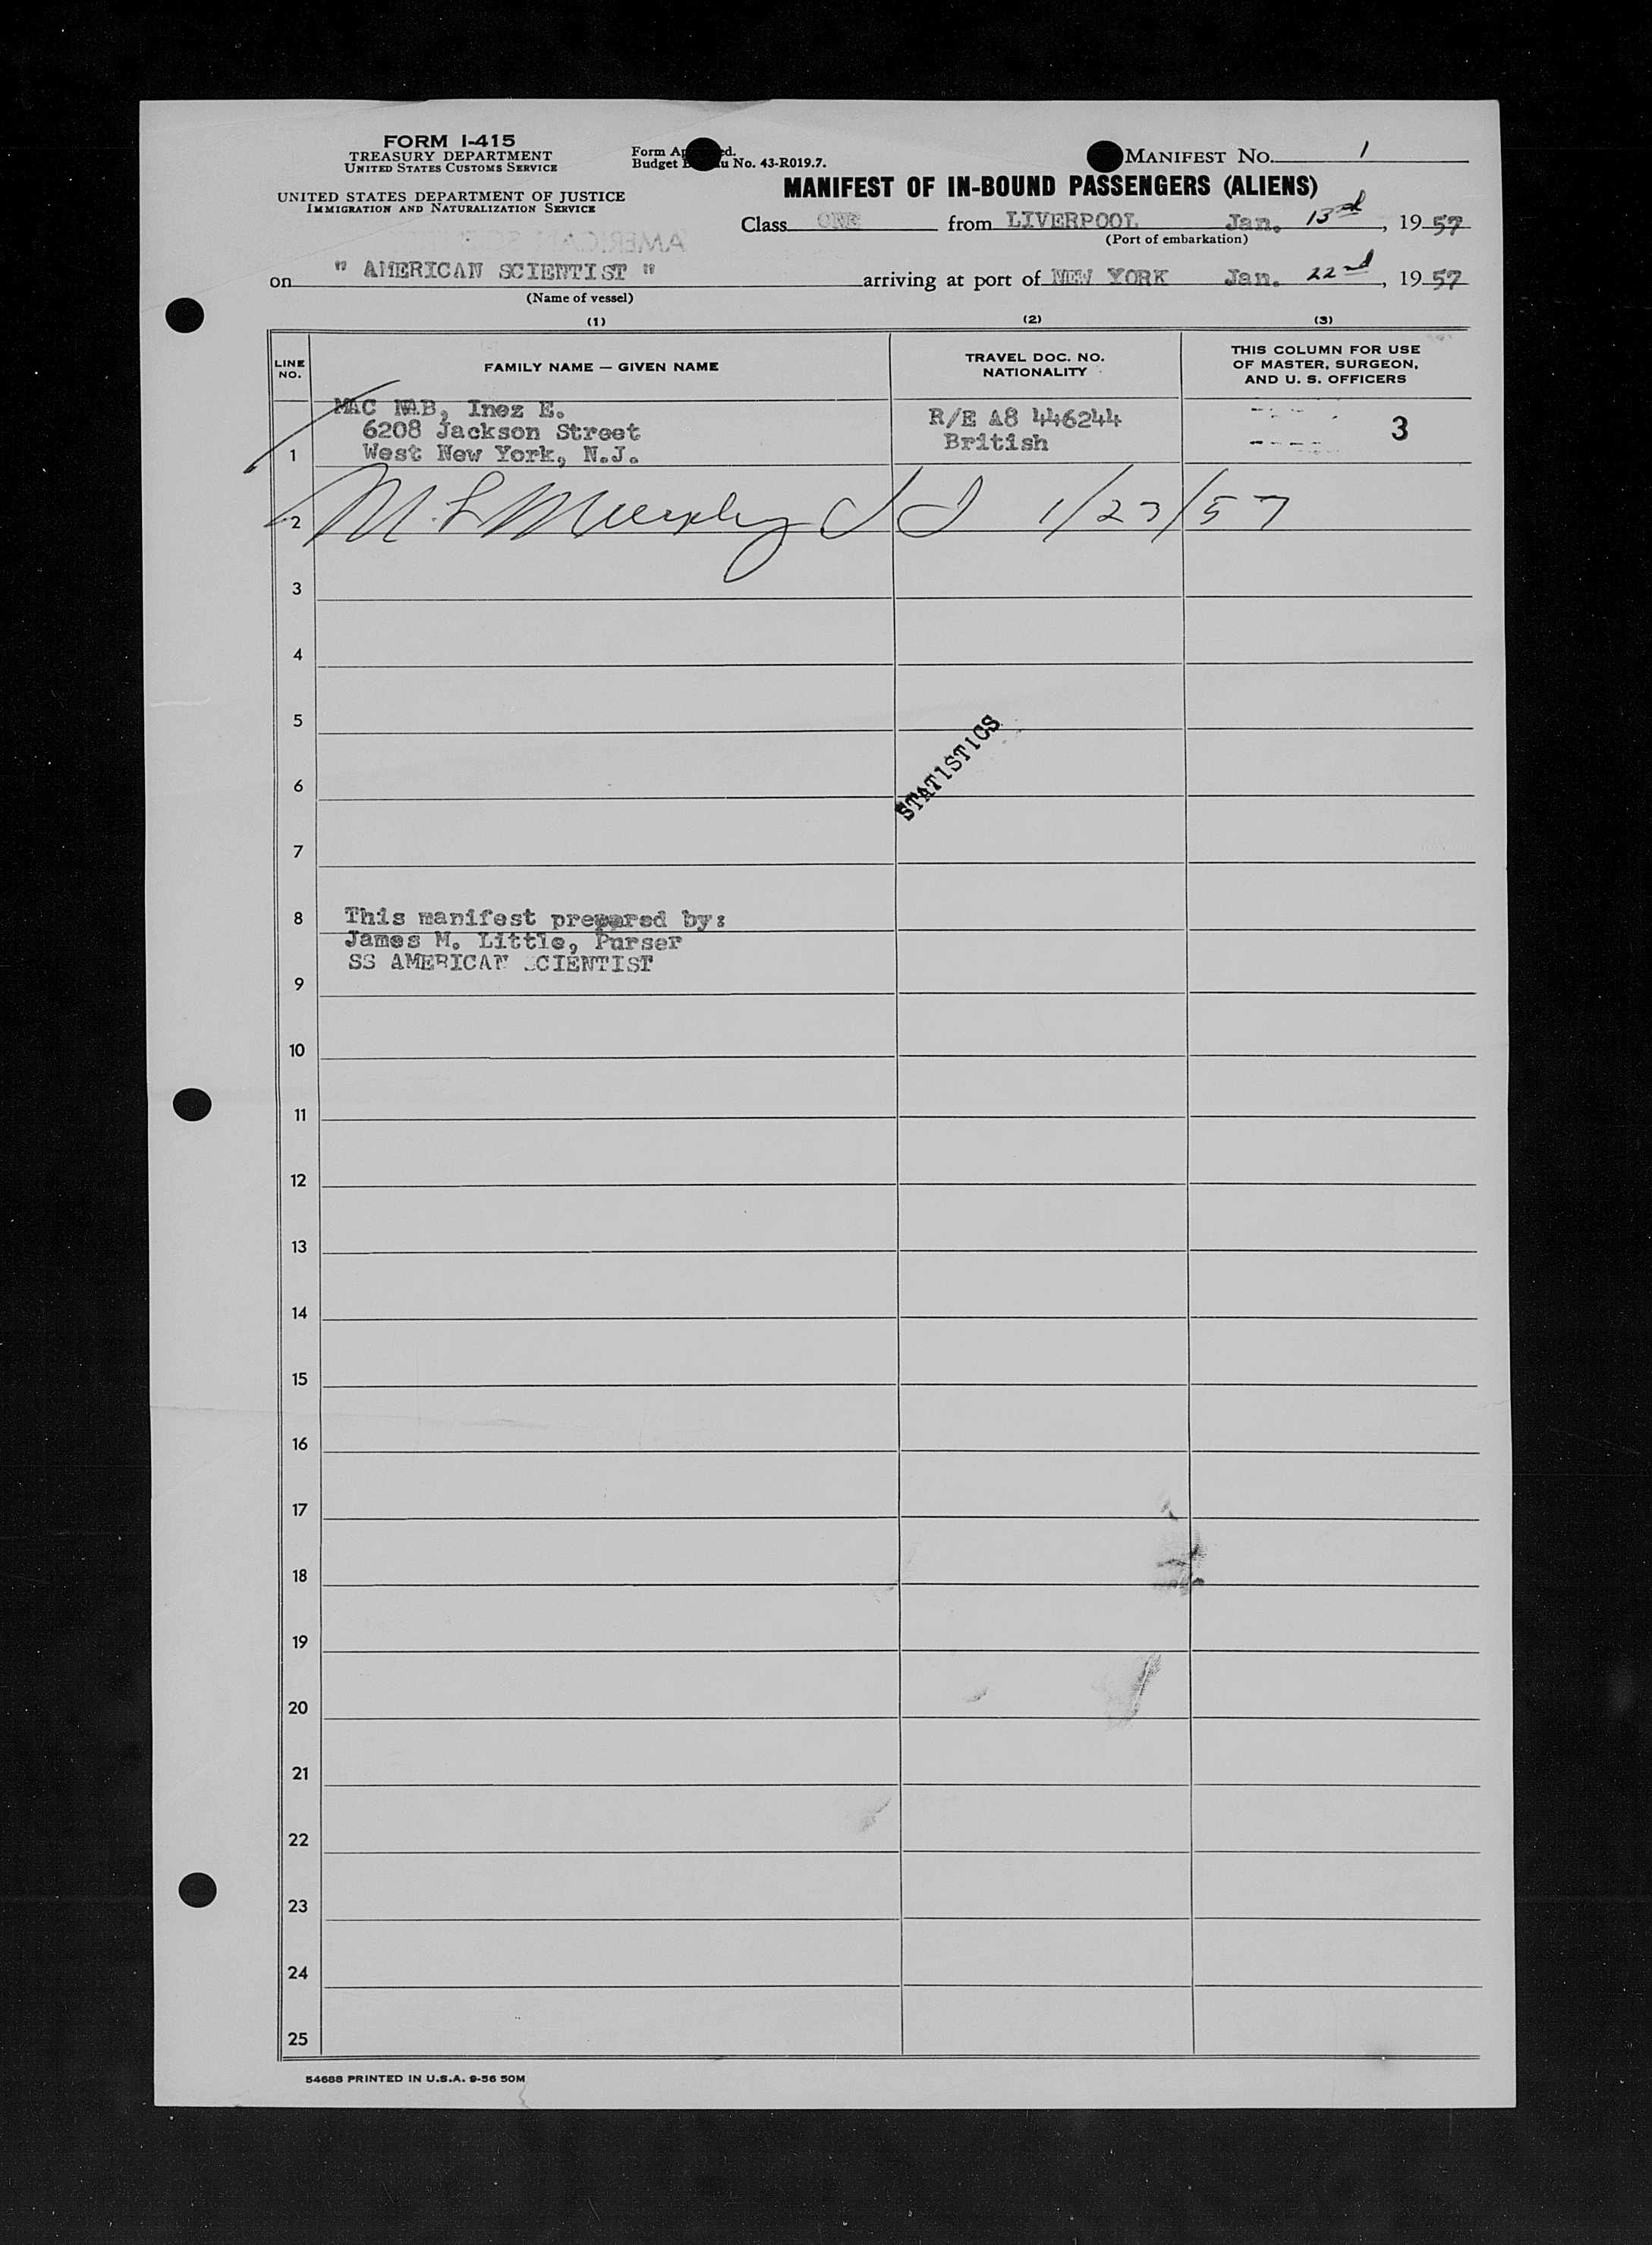 FORM I-415
TREASURY DEPARTMENT
UNITED STATES CUSTOMS SERVICE
UNITED STATES DEPARTMENT OF JUSTICE
IMMIGRATION AND NATURALIZATION SERVICE
Form Ap ed.
Budget B u No. 43-R019.7.
MANIFEST NO. 1
MANIFEST OF IN-BOUND PASSENGERS (ALIENS)
Class ONE from LIVERPOOL Jan. 13rd, 19 57
(Port of embarkation)
on " AMERICAN SCIENTIST " arriving at port of NEW YORK Jan. 22nd, 19 57
(Name of vessel)
(1) (2) (3)
LINE NO. FAMILY NAME — GIVEN NAME TRAVEL DOC. NO. NATIONALITY THIS COLUMN FOR USE OF MASTER, SURGEON, AND U. S. OFFICERS
MAC NAB, Inez E. R/E A8 446244 3
6208 Jackson Street British
1 West New York, N.J.
2 M. L. Murphy 1/23/57
3
4
5
STATISTICS
6
7
8 This manifest prepared by:
James M. Little, Purser
SS AMERICAN SCIENTIST
9
10
11
12
13
14
15
16
17
18
19
20
21
22
23
24
25
54688 PRINTED IN U.S.A. 9-56 50M